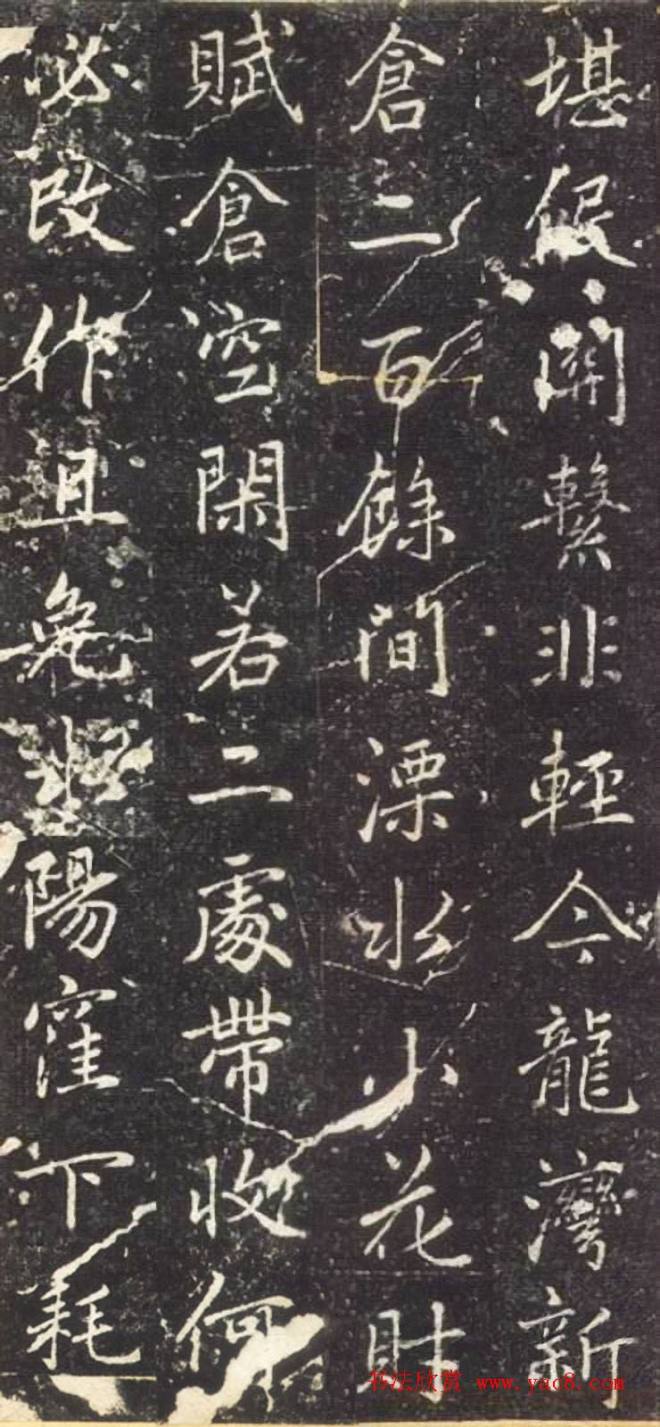 堪假関繫非輕今龍灣新
倉二百餘間溧水小花財
賦倉空閑若二處帶收何
必改作且免水陽窪下耗
书法欣赏 www.yac8.com